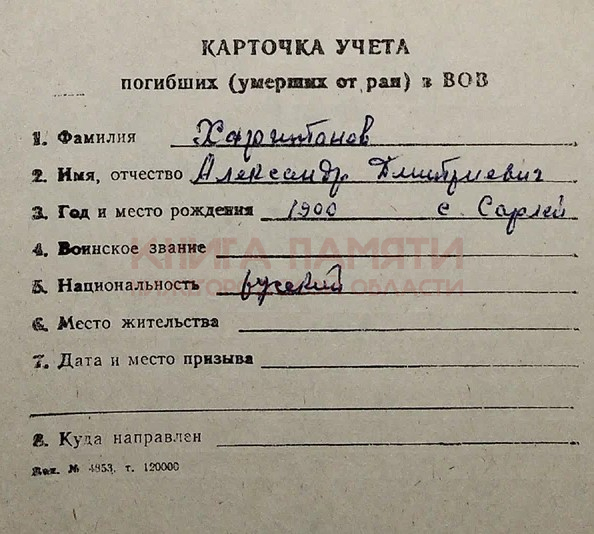 КАРТОЧКА УЧЕТА
погибших (умерших от ран) в ВОВ
1. Фамилия Харитонов
2. Имя, отчество Александр Дмитриевич
3. Год и место рождения 1900 с. Сарлей
4. Воинское звание
КНИГА ПАМЯТИ
5. Национальность русский
НИЖЕГОРОДСКОЙ ОБЛАСТИ
6. Место жительства
7. Дата и место призыва
8. Куда направлен
Зак. № 4853. т. 120000